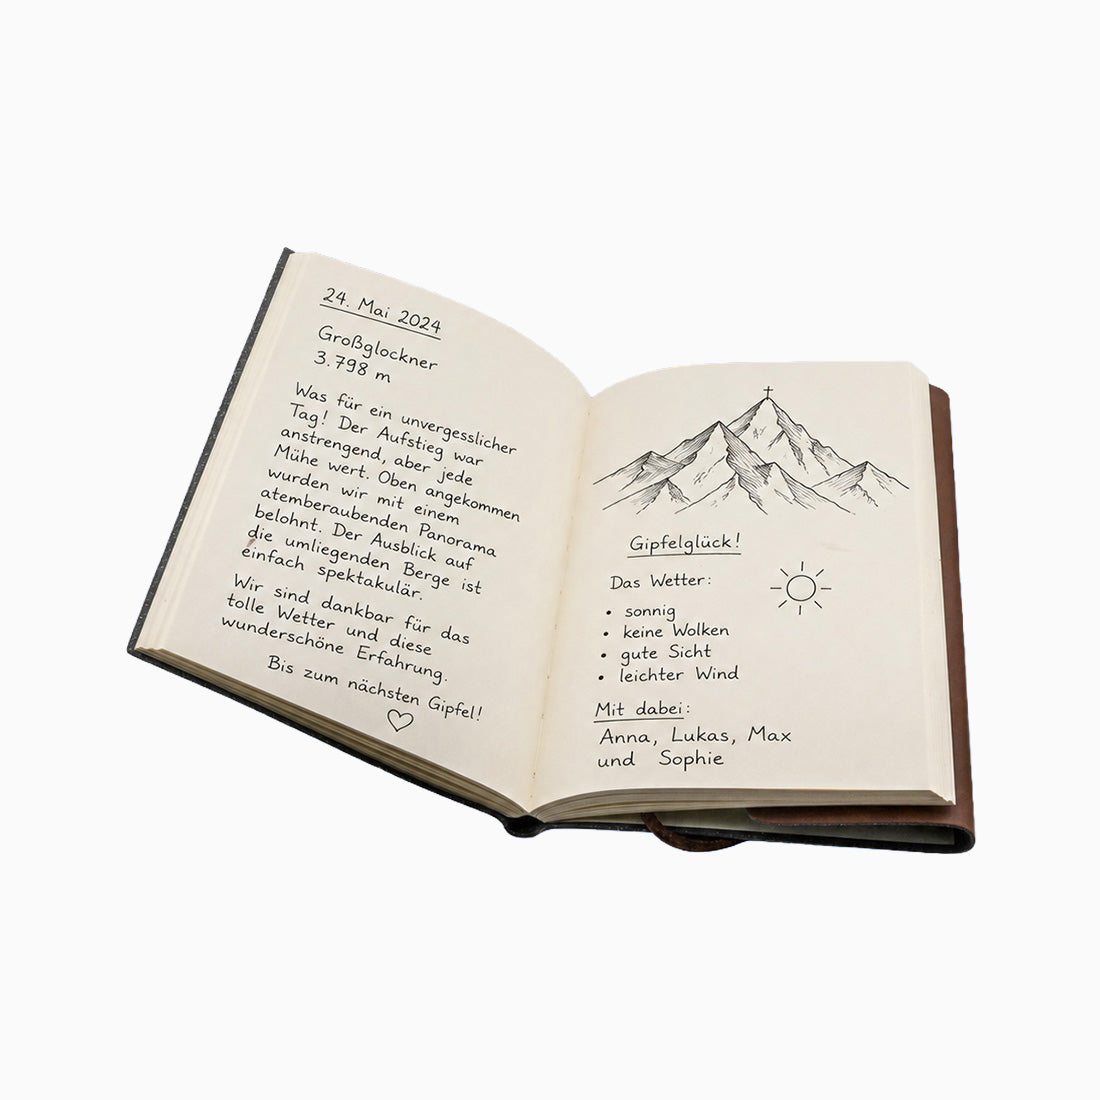 24. Mai 2024
Großglockner
3.798 m
Was für ein unvergesslicher
Tag! Der Aufstieg war
anstrengend, aber jede
Mühe wert. Oben angekommen
wurden wir mit einem
atemberaubenden Panorama
belohnt. Der Ausblick auf
die umliegenden Berge ist
einfach spektakulär.
Wir sind dankbar für das
tolle Wetter und diese
wunderschöne Erfahrung.
Bis zum nächsten Gipfel!
Gipfelglück!
Das Wetter:
• sonnig
• keine Wolken
• gute Sicht
• leichter Wind
Mit dabei:
Anna, Lukas, Max
und Sophie